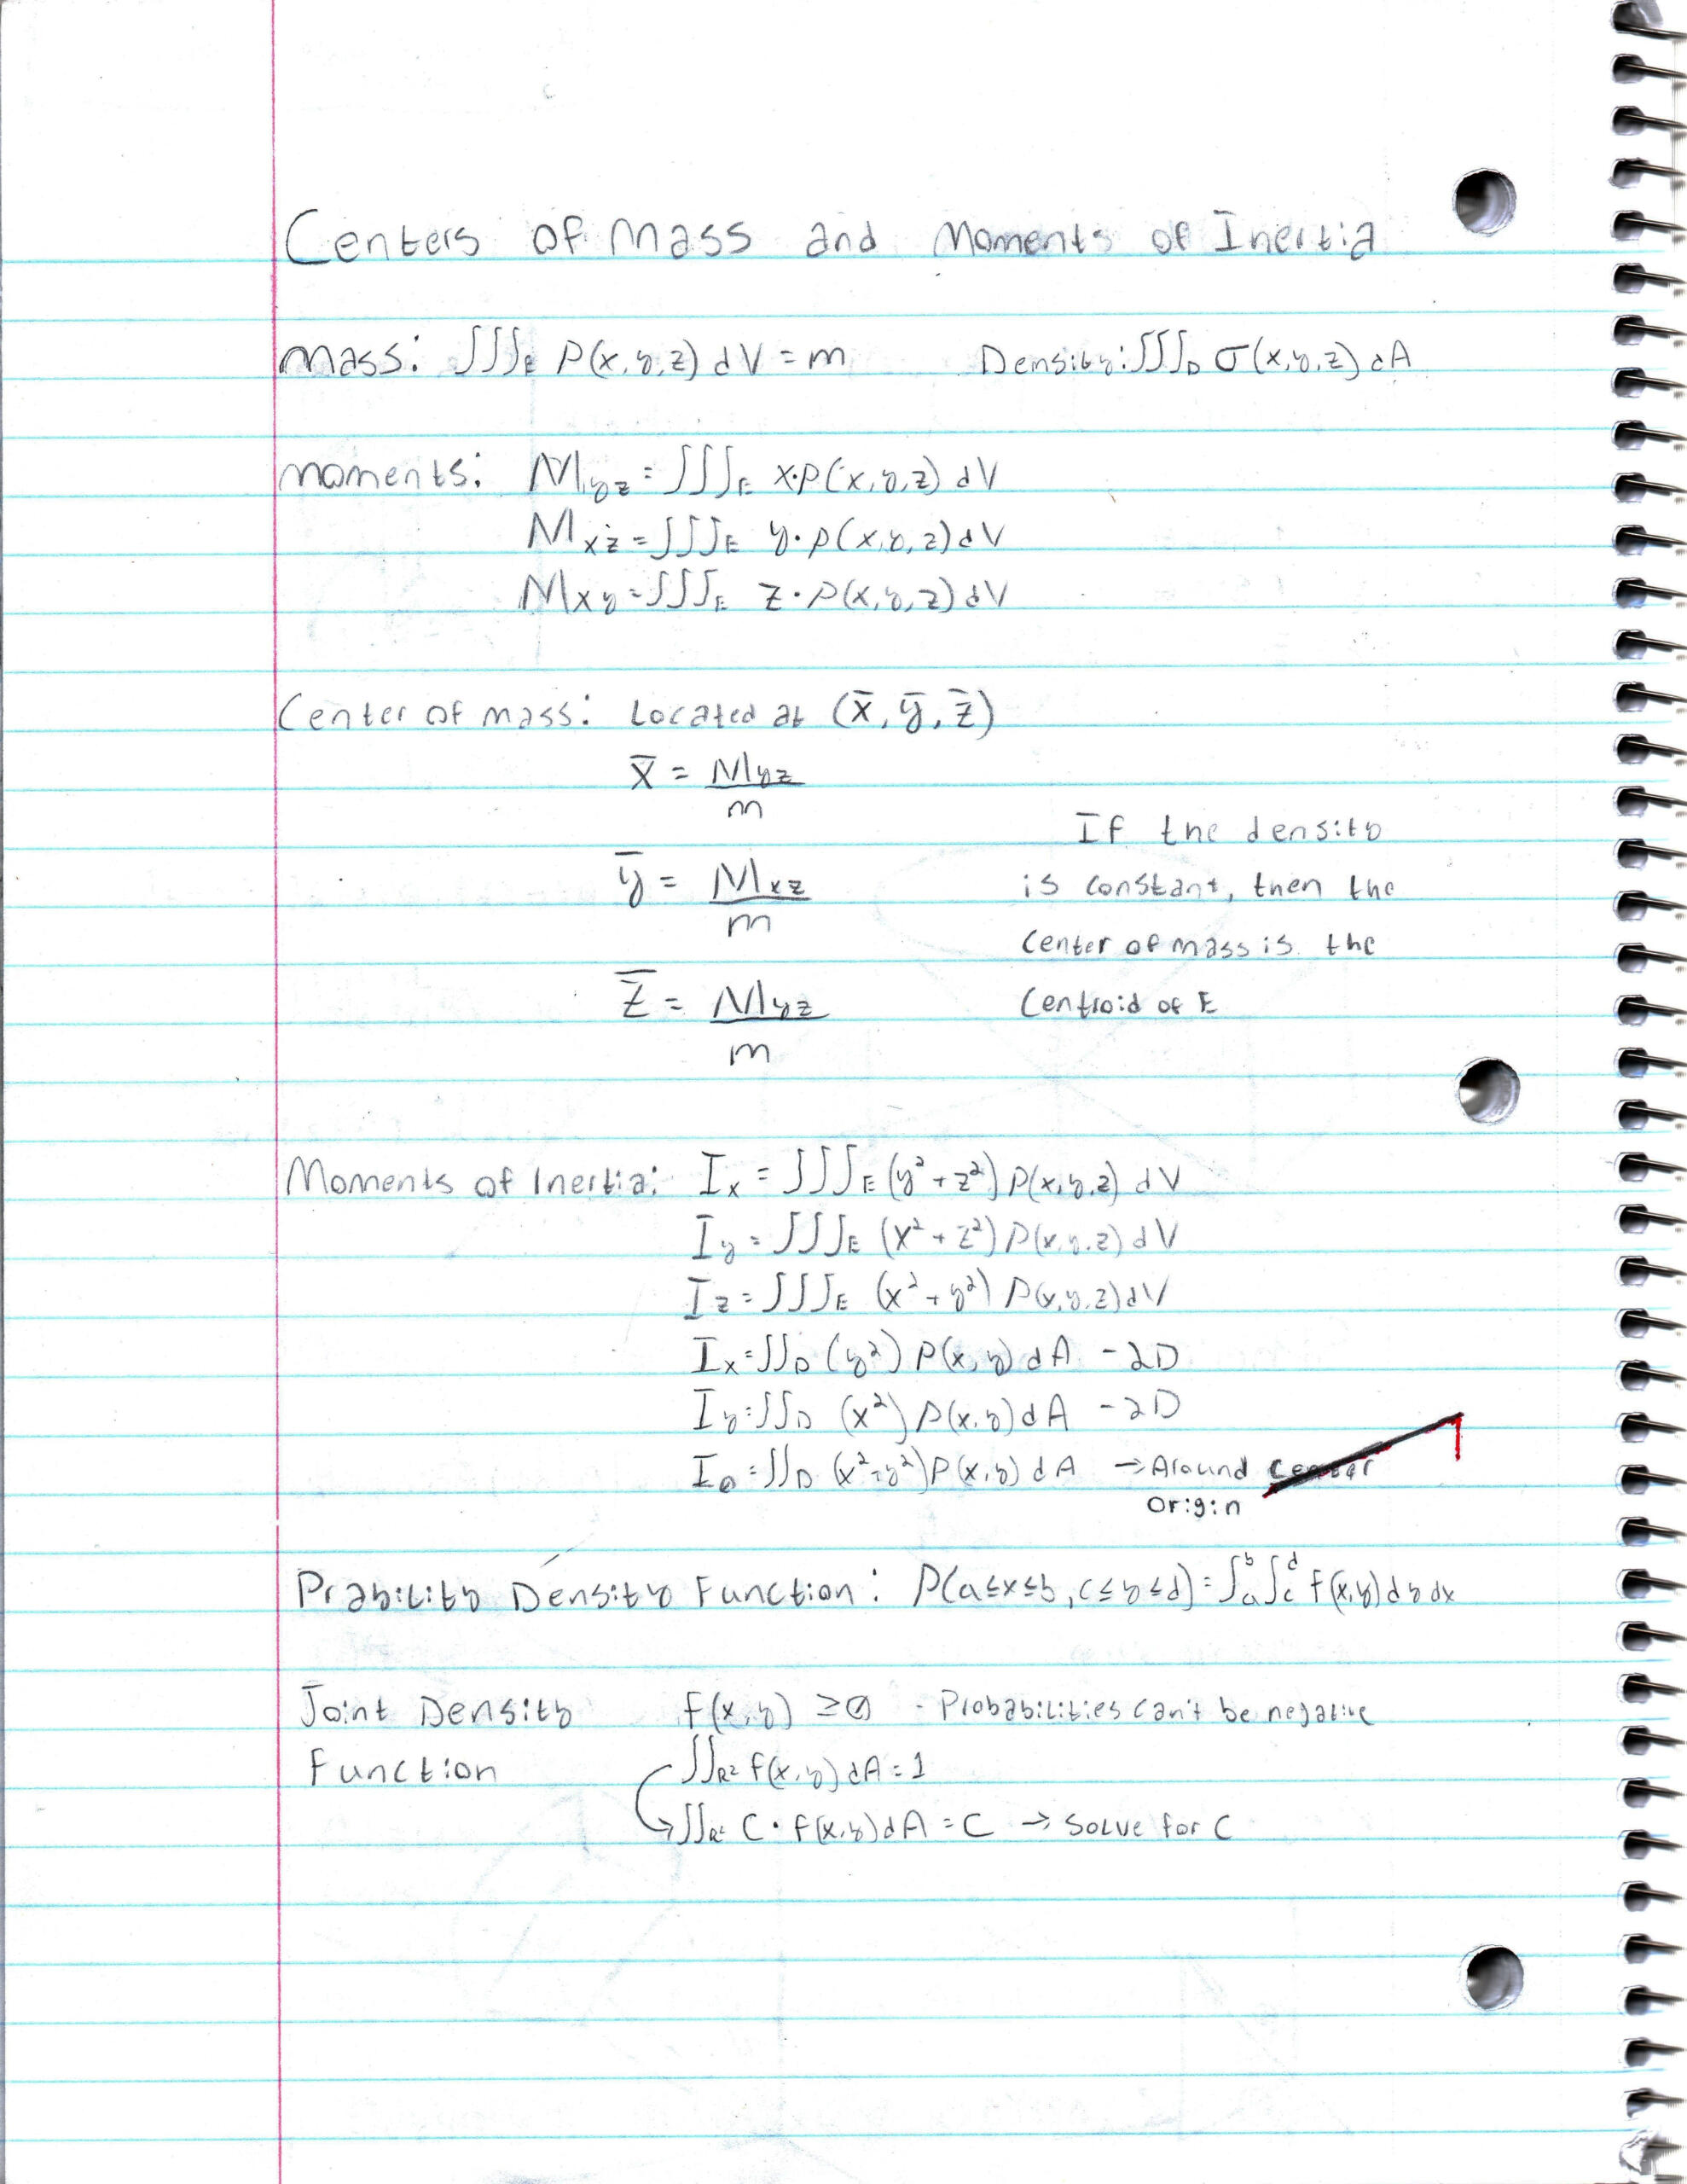 Centers of Mass and Moments of Inertia
Mass: ∭_E ρ(x,y,z) dV = m Density: ∭_D σ(x,y,z) dA
Moments: M_yz = ∭_E x·ρ(x,y,z) dV
M_xz = ∭_E y·ρ(x,y,z) dV
M_xy = ∭_E z·ρ(x,y,z) dV
Center of mass: Located at (x̄, ȳ, z̄)
x̄ = M_yz / m
ȳ = M_xz / m
z̄ = M_yz / m
If the density
is constant, then the
center of mass is the
centroid of E
Moments of Inertia: I_x = ∭_E (y² + z²) ρ(x,y,z) dV
I_y = ∭_E (x² + z²) ρ(x,y,z) dV
I_z = ∭_E (x² + y²) ρ(x,y,z) dV
I_x = ∬_D (y²) ρ(x,y) dA - 2D
I_y = ∬_D (x²) ρ(x,y) dA - 2D
I_0 = ∬_D (x²+y²) ρ(x,y) dA → Around center
origin
Prability Density Function: P(a≤x≤b, c≤y≤d) = ∫_a^b ∫_c^d f(x,y) dy dx
Joint Density f(x,y) ≥ 0 - Probabilities can't be negative
Function ∬_R² f(x,y) dA = 1
∬_R² C · f(x,y) dA = C → Solve for C